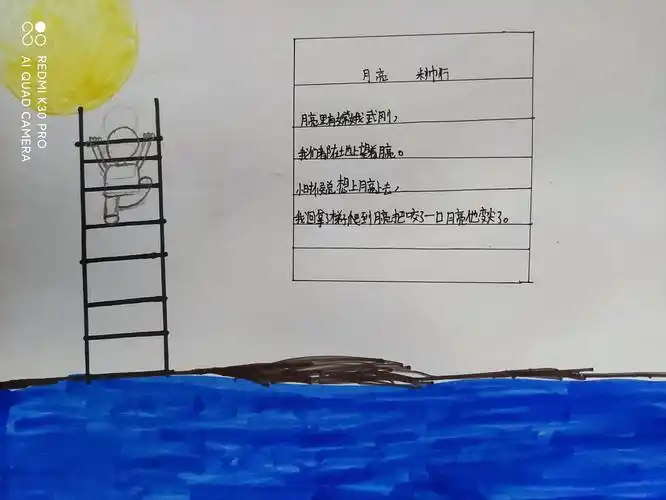 REDMI K30 PRO
AI QUAD CAMERA
月亮
月亮里有嫦娥武刚，
我们都在地上望着月亮。
小时候总想上月亮上去，
我回拿了梯子爬到月亮把咬了一口月亮他变尖了。